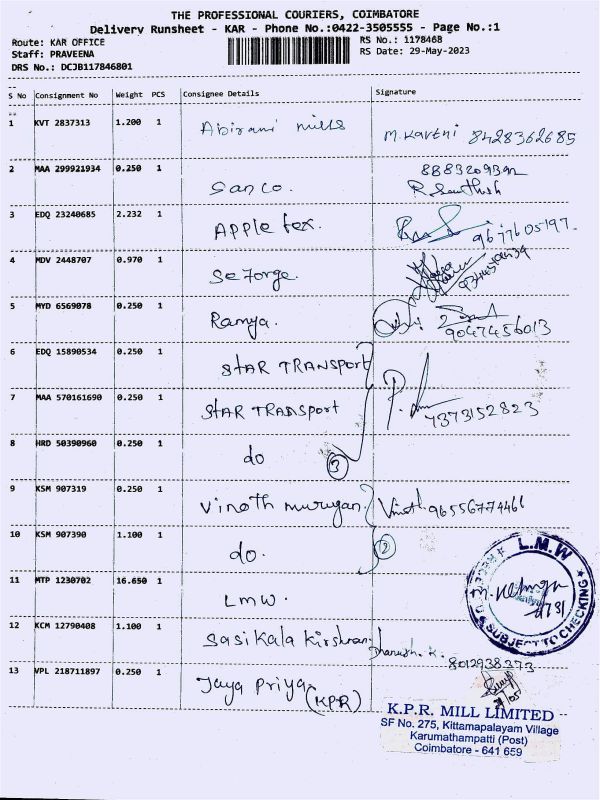 THE PROFESSIONAL COURIERS, COIMBATORE
Delivery Runsheet - KAR - Phone No.:0422-3505555 - Page No.:1
Route: KAR OFFICE RS No.: 1178468
Staff: PRAVEENA RS Date: 29-May-2023
DRS No.: DCJB117846801
S No Consignment No Weight PCS Consignee Details Signature
1 KVT 2837313 1.200 1 Abirami mills M. Karthi 8428362685
2 MAA 299921934 0.250 1 Sanco.
3 EDQ 23240685 2.232 1 Apple tex. 9677605197
4 MDV 2448707 0.970 1
5 MYD 6569078 0.250 1 Ramya. 9047456013
6 EDQ 15890534 0.250 1 STAR TRANSPORT
7 MAA 570161690 0.250 1 STAR TRANSPORT 7373152823
8 HRD 50390960 0.250 1 do 3
9 KSM 907319 0.250 1 Vinoth murugan. 96556774461
10 KSM 907390 1.100 1 do. 2
11 MTP 1230702 16.650 1 LMW.
L.M.W
RECEIVED SUBJECT TO CHECKING
12 KCM 12790408 1.100 1 Sasikala Dhanush. K. 8012938273
13 VPL 218711897 0.250 1 Jaya Priya (KPR)
K.P.R. MILL LIMITED
SF No. 275, Kittamapalayam Village
Karumathampatti (Post)
Coimbatore - 641 659